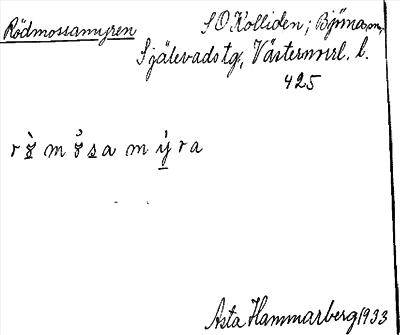 Rödmossamyren
SO Kolliden; Björna sn,
Själevads tg, Västernorrl. l.
425
Asta Hammarberg 1933